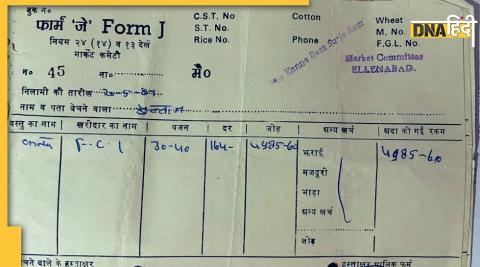 बुक न०
C.S.T. No Cotton Wheat
DNA हिंदी
फार्म 'जे' Form J
S.T. No M. No.
नियम २४ (१४) व १३ देखें
Rice No. Phone F.G.L. No.
मार्केट कमेटी
Market Committee
ELLENABAD.
न० 45 ना० मै०
नीलामी की तारीख
नाम व पता बेचने वाला
वस्तु का नाम खरीदार का नाम वजन दर जोड़ अन्य खर्च अदा की गई रकम
F.C.I 30-40 164- 4985-60 भराई 4985-60
मजदूरी
भाड़ा
अन्य खर्च
जोड़
बेचने वाले के हस्ताक्षर हस्ताक्षर मालिक फर्म